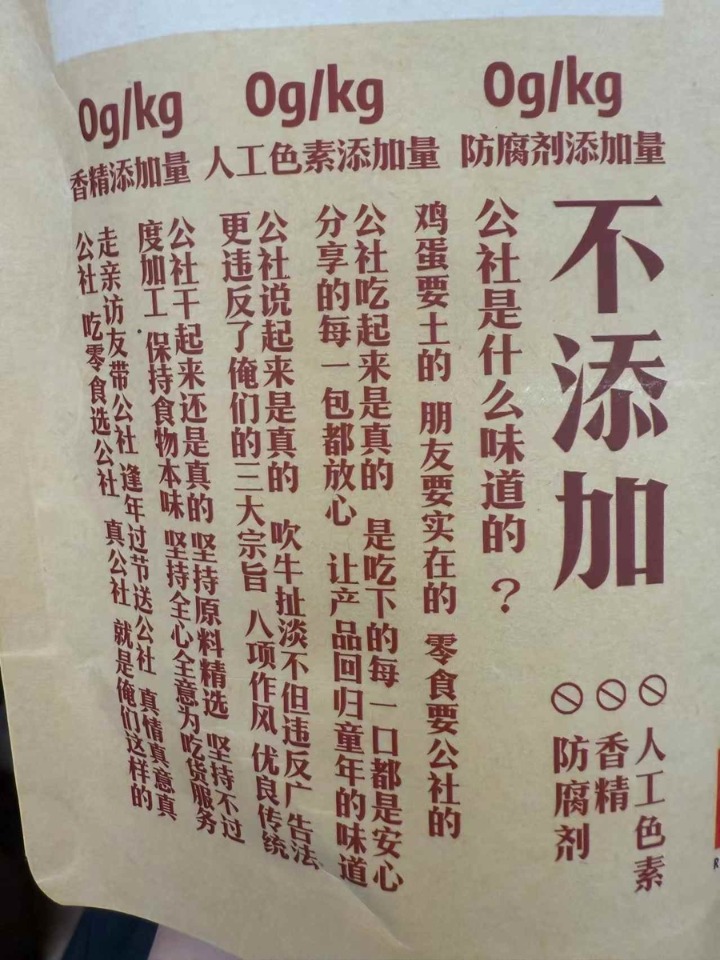 0g/kg
香精添加量
0g/kg
人工色素添加量
0g/kg
防腐剂添加量
不添加
人工色素
香精
防腐剂
公社是什么味道的？
鸡蛋要土的 朋友要实在的 零食要公社的
公社吃起来是真的 是吃下的每一口都是安心
分享的每一包都放心 让产品回归童年的味道
公社说起来是真的 吹牛扯淡不但违反广告法
更违反了俺们的三大宗旨 八项作风 优良传统
公社干起来还是真的 坚持原料精选 坚持不过
度加工 保持食物本味 坚持全心全意为吃货服务
走亲访友带公社 逢年过节送公社 真情真意真
公社 吃零食选公社 真公社 就是俺们这样的
R